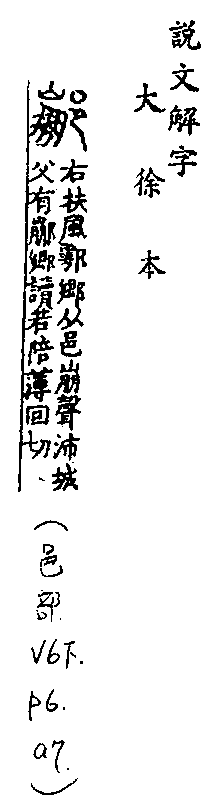 說文解字
大徐本
䣙
右扶風鄠鄉从邑崩聲沛城
父有䣙鄉讀若陪薄回切、
(邑部. V6下. p6. a7.)